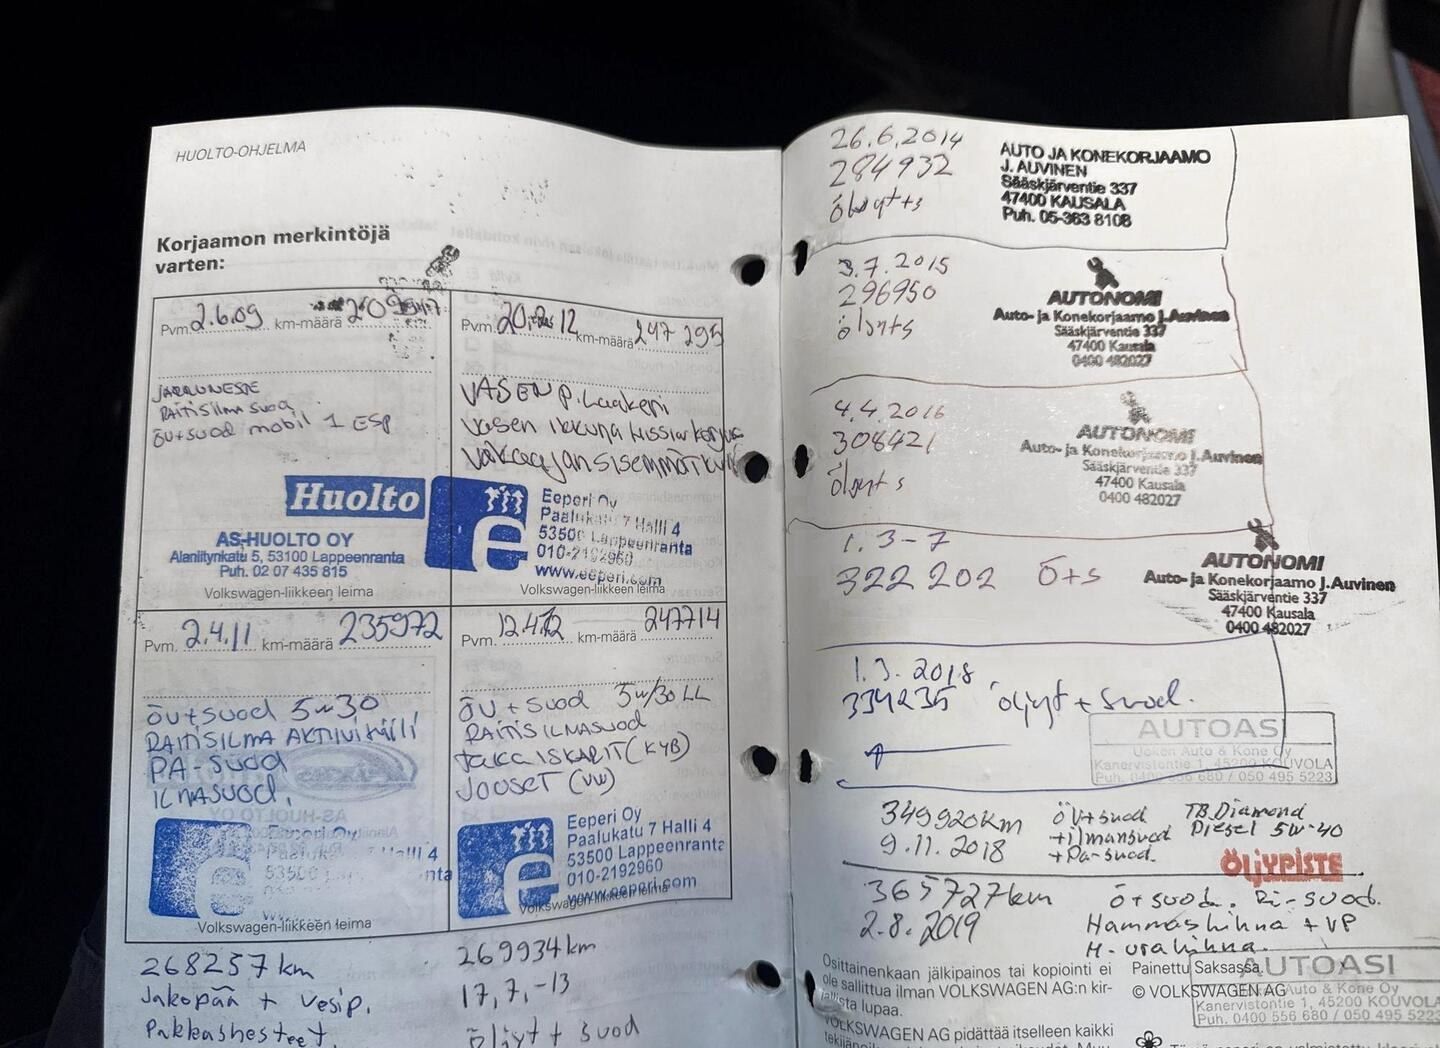 HUOLTO-OHJELMA
Korjaamon merkintöjä
varten:
Pvm. 2.6.09 km-määrä
JARRUNESTE
RAITISILMA SUOD
ÖV+SUOD MOBIL 1 ESP
Huolto
AS-HUOLTO OY
Alaniitynkatu 5, 53100 Lappeenranta
Puh. 02 07 435 815
Volkswagen-liikkeen leima
Pvm. 12 km-määrä 247 295
VASEN P. Laakeri
Vasen ikkuna Hissin korjaus
e
Eeperi Oy
Paalukatu 7 Halli 4
53500 Lappeenranta
010-2192960
www.eeperi.com
Volkswagen-liikkeen leima
Pvm. 2.4.11 km-määrä 235972
ÖV+SUOD 5W30
RAITISILMA AKTIIVIHIILI
PA-SUOD
ILMASUOD.
Eeperi Oy
Paalukatu 7 Halli 4
Volkswagen-liikkeen leima
Pvm. 12.4.12 km-määrä 247714
ÖV + SUOD 5W/30 LL
RAITISILMASUOD
TAKA ISKARIT (KYB)
JOUSET (VW)
e
Eeperi Oy
Paalukatu 7 Halli 4
53500 Lappeenranta
010-2192960
www.eeperi.com
Volkswagen-liikkeen leima
268257 km
Jakopää + vesip.
Pakkasnesteet.
269934 km
17,7,-13
Öljyt + suod
26.6.2014
284932
Öljyt+s
AUTO JA KONEKORJAAMO
J. AUVINEN
Sääskjärventie 337
47400 KAUSALA
Puh. 05-363 8108
3.7.2015
296950
öljyt+s
AUTONOMI
Auto- ja Konekorjaamo J.Auvinen
Sääskjärventie 337
47400 Kausala
0400 482027
4.4.2016
308421
öljyt+s
AUTONOMI
Auto- ja Konekorjaamo J.Auvinen
Sääskjärventie 337
47400 Kausala
0400 482027
1.3-7
322 202 Ö+s
AUTONOMI
Auto- ja Konekorjaamo J.Auvinen
Sääskjärventie 337
47400 Kausala
0400 482027
1.3.2018
334235 öljyt + suod.
AUTOASI
Auto & Kone Oy
Kanervistontie 1, 45200 KOUVOLA
Puh. 0400 556 680 / 050 495 5223
349920km ÖV+suod TB Diamond
9.11.2018 +ilmansuod Diesel 5W-40
+Pa-suod.
ÖLJYPISTE
365727km Ö+suod. Ri-suod.
2.8.2019 Hammashihna + VP
H-urahihna.
AUTOASI
Auto & Kone Oy
Kanervistontie 1, 45200 KOUVOLA
Puh. 0400 556 680 / 050 495 5223
Osittainenkaan jälkipainos tai kopiointi ei
ole sallittua ilman VOLKSWAGEN AG:n kir-
jallista lupaa.
VOLKSWAGEN AG pidättää itselleen kaikki
Painettu Saksassa
© VOLKSWAGEN AG